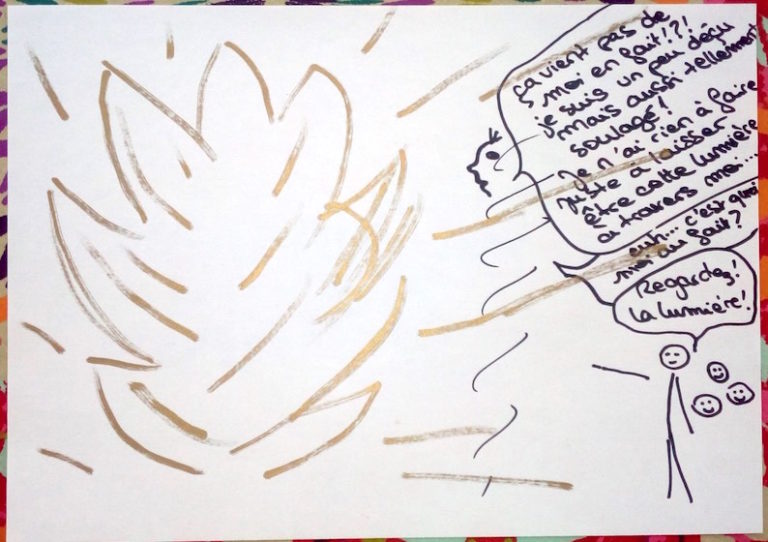 ça vient pas de
moi en fait!?!
je suis un peu déçu
mais aussi tellement
soulagé!
Je n'ai rien à faire
juste à laisser
être cette lumière
à travers moi...
euh... c'est quoi
moi au fait?
Regardez!
la lumière!